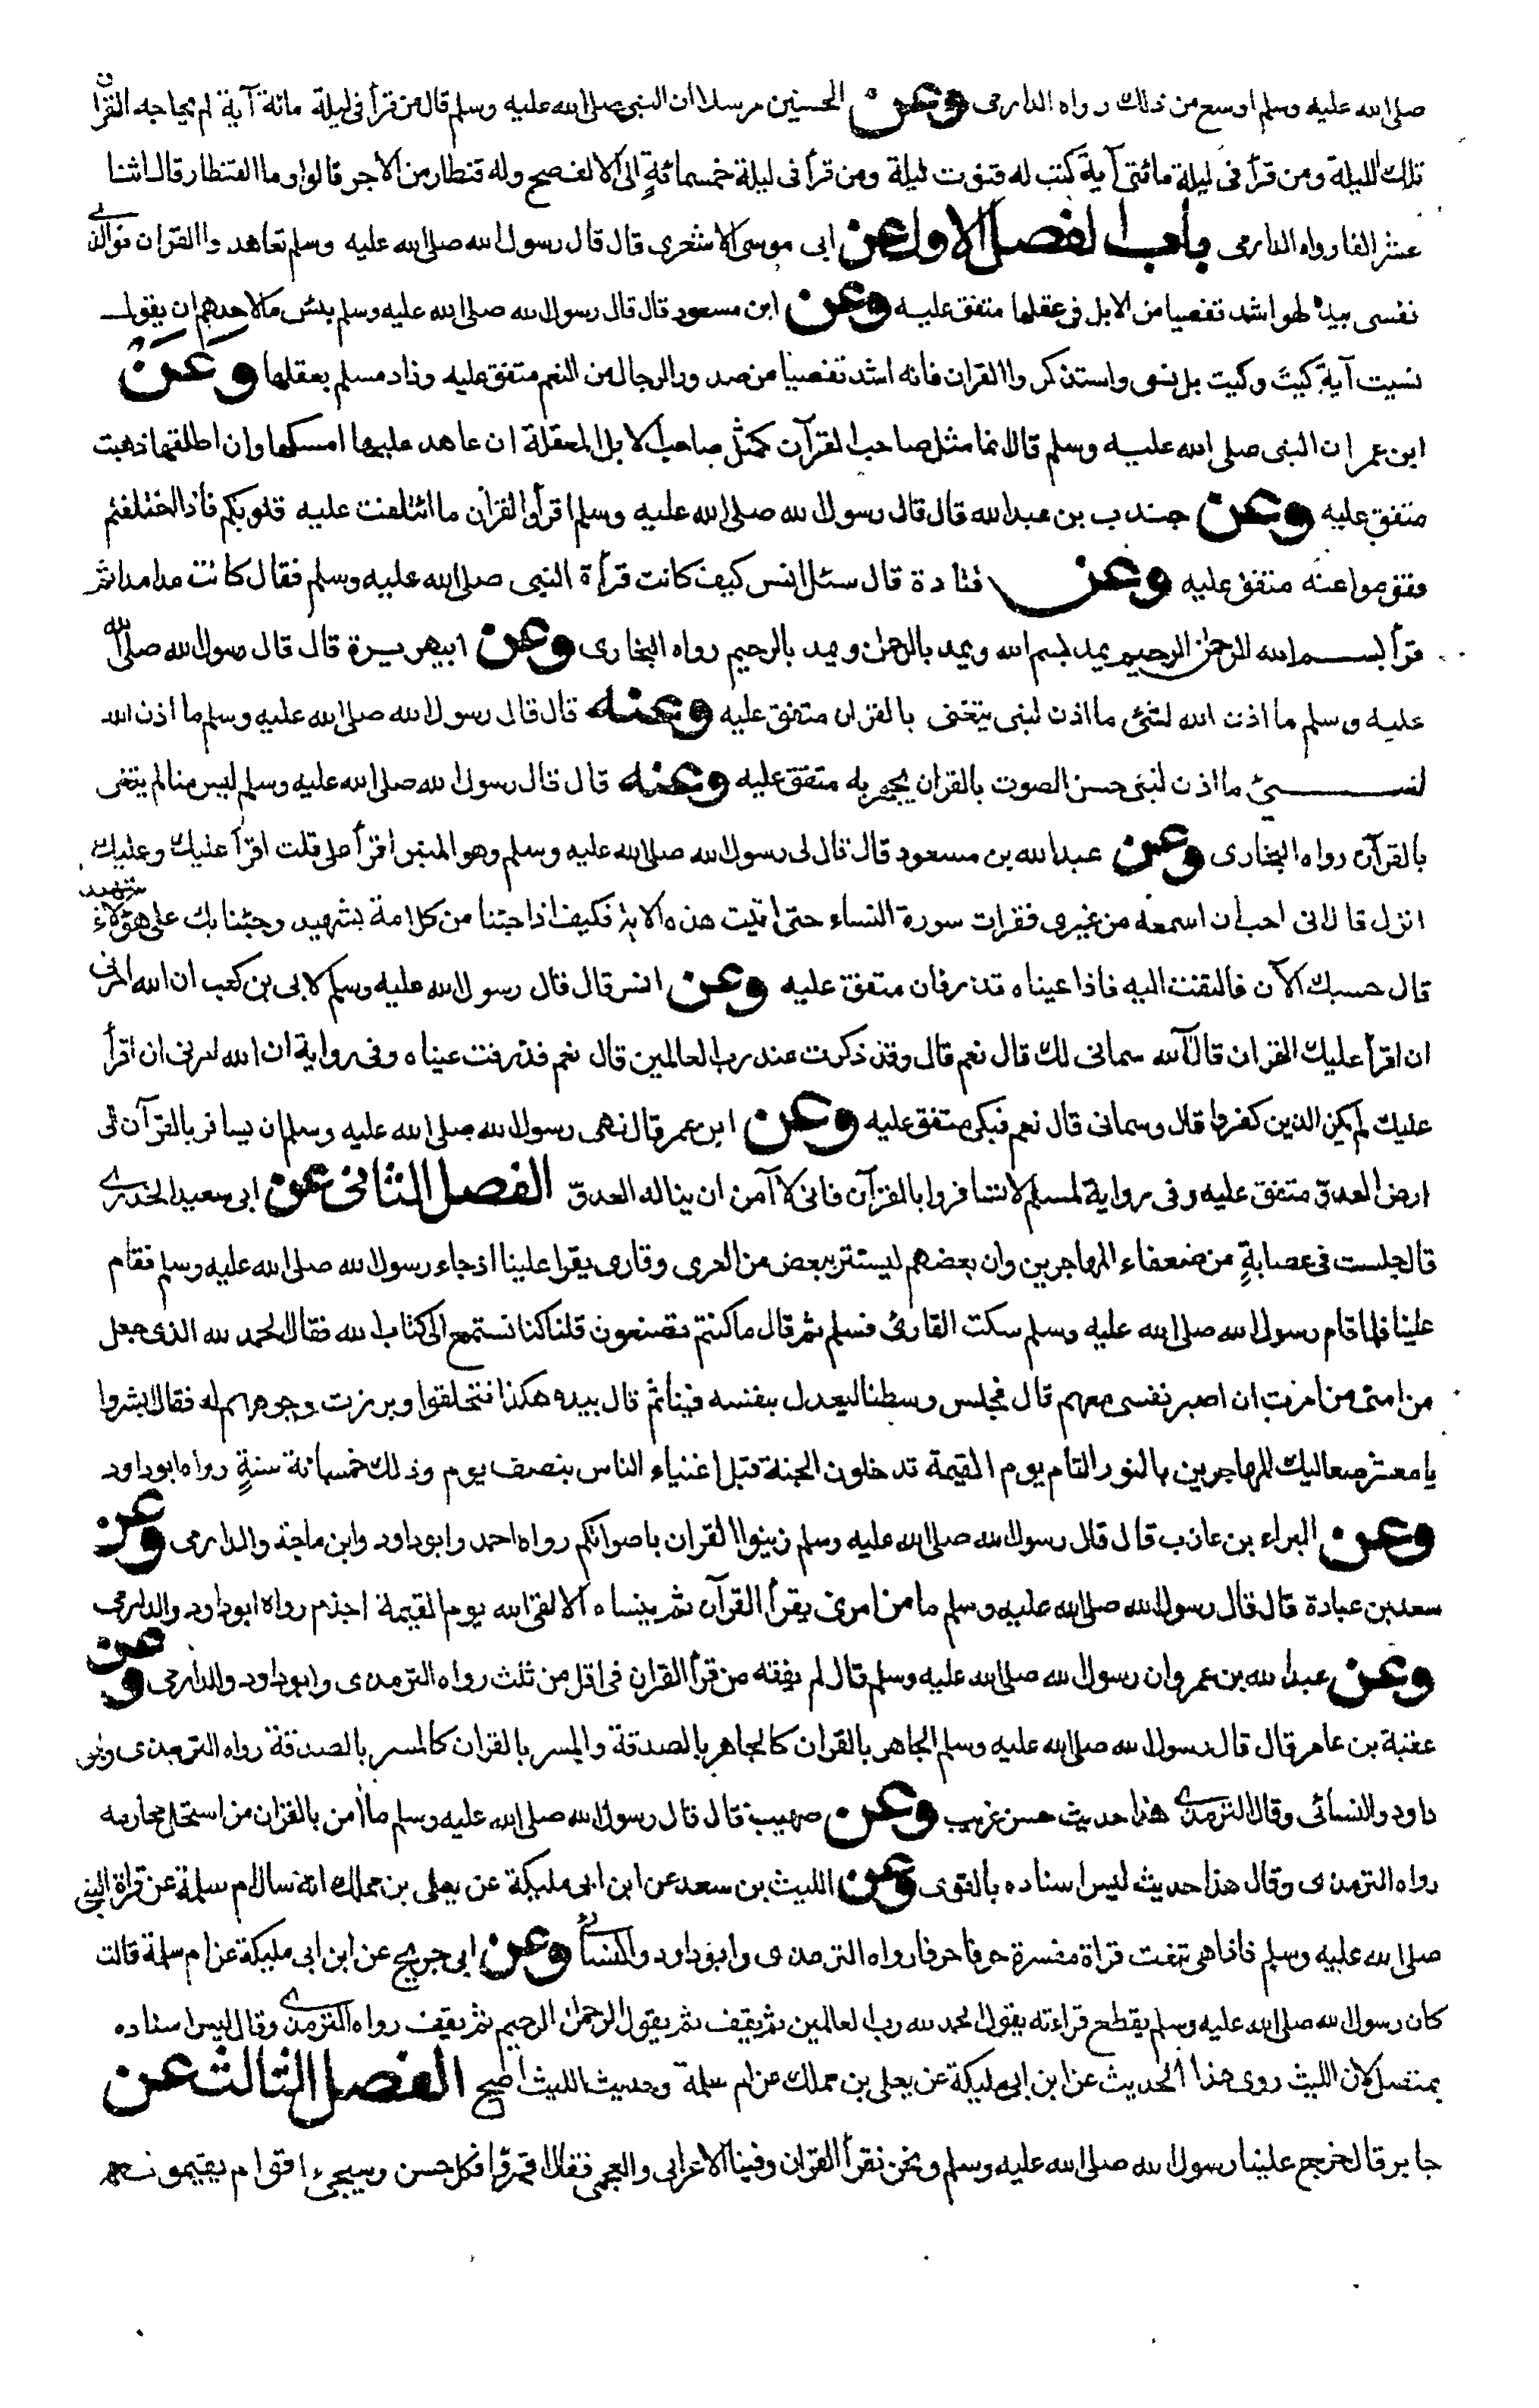 صلى الله عليه وسلم اوسع من ذلك رواه الدارمى وعن الحسنين مرسلا ان النبى صلى الله عليه وسلم قال من قرأ فى ليلة مائة آية لم يحاجه القرآن
تلك الليلة ومن قرأ فى ليلة مائتى آية كتب له قنوت ليلة ومن قرأ فى ليلة خمسمائةٍ الى الالف صبح وله قنطار من الاجر قالوا وما القنطار قال اثنا
عشر الفا رواه الدارمى باب الفصل الاول عن ابى موسى الاشعرى قال قال رسول الله صلى الله عليه وسلم تعاهدوا القران فوالذى
نفسى بيده لهو اشد تفصيا من الابل فى عقلها متفق عليه وعن ابن مسعود قال قال رسول الله صلى الله عليه وسلم بئس ما لاحدهم ان يقول
نسيت آية كيتَ وكيت بل نسى واستذكروا القران فانه اشد تفصيا من صدور الرجال من النعم متفق عليه وزاد مسلم بعقلها وَعَنْ
ابن عمر ان النبى صلى الله عليه وسلم قال انما مثل صاحب القرآن كمثل صاحب الابل المعقلة ان عاهد عليها امسكها وان اطلقها ذهبت
متفق عليه وعن جندب بن عبد الله قال قال رسول الله صلى الله عليه وسلم اقرأوا القرآن ما ائتلفت عليه قلوبكم فاذا اختلفتم
فقوموا عنه متفق عليه وعن قتادة قال سئل انس كيف كانت قرأة النبى صلى الله عليه وسلم فقال كانت مدا مدا ثم
قرأ بسم الله الرحمٰن الرحيم يمد بسم الله ويمد بالرحمٰن ويمد بالرحيم رواه البخارى وعن ابيهريرة قال قال رسول الله صلى الله
عليه وسلم ما اذن الله لشئ ما اذن لنبى يتغنى بالقران متفق عليه وعنه قال قال رسول الله صلى الله عليه وسلم ما اذن الله
لشئ ما اذن لنبى حسن الصوت بالقران يجهر به متفق عليه وعنه قال قال رسول الله صلى الله عليه وسلم ليس منا لم يتغنى
بالقرآن رواه البخارى وعن عبد الله بن مسعود قال قال لى رسول الله صلى الله عليه وسلم وهو المنبر اقرأ على قلت اقرأ عليك وعليك
انزل قال انى احب ان اسمعه من غيرى فقرات سورة النساء حتى اتيت هذه الاية فكيف اذا جئنا من كل امة بشهيد وجئنا بك على هؤلاء شهيد
قال حسبك الآن فالتفت اليه فاذا عيناه تذرفان متفق عليه وعن انس قال قال رسول الله عليه وسلم لابى بن كعب ان الله امرنى
ان اقرأ عليك القران قال آلله سمانى لك قال نعم قال وقد ذكرت عند رب العالمين قال نعم فذرفت عيناه وفى رواية ان الله امرنى ان اقرأ
عليك لم يكن الذين كفروا قال وسمانى قال نعم فبكى متفق عليه وعن ابن عمر قال نهى رسول الله صلى الله عليه وسلم ان يسافر بالقرآن الى
ارض العدوّ متفق عليه وفى رواية لمسلم لا تسافروا بالقرآن فانى لا آمن ان يناله العدوّ الفصل الثانى عن ابى سعيد الخدرى
قال جلست فى عصابةٍ من ضعفاء المهاجرين وان بعضهم ليستتر ببعض من العرى وقارى يقرا علينا اذ جاء رسول الله صلى الله عليه وسلم فقام
علينا فلما قام رسول الله صلى الله عليه وسلم سكت القارئ فسلم ثم قال ما كنتم تصنعون قلنا كنا نستمع الى كتاب الله فقال الحمد لله الذى جعل
من امتى من امرت ان اصبر نفسى معهم قال فجلس وسطنا ليعدل بنفسه فينا ثم قال بيده هكذا فتحلقوا وبرزت وجوههم له فقال ابشروا
يا معشر صعاليك المهاجرين بالنور التام يوم القيمة تدخلون الجنة قبل اغنياء الناس بنصف يوم وذلك خمسمائة سنةٍ رواه ابوداود
وعن البراء بن عازب قال قال رسول الله صلى الله عليه وسلم زينوا القران باصواتكم رواه احمد وابوداود وابن ماجة والدارمى وعن
سعد بن عبادة قال قال رسول الله صلى الله عليه وسلم ما من امرئ يقرأ القرآن ثم ينساه الا لقى الله يوم القيمة اجذم رواه ابوداود والدارمى
وعن عبد الله بن عمرو ان رسول الله صلى الله عليه وسلم قال لم يفقه من قرأ القران فى اقل من ثلث رواه الترمذى وابوداود والدارمى وعن
عقبة بن عامر قال قال رسول الله صلى الله عليه وسلم الجاهر بالقران كالجاهر بالصدقة والمسر بالقران كالمسر بالصدقة رواه الترمذى وابو
داود والنسائى وقال الترمذى هذا حديث حسن غريب وعن صهيب قال قال رسول الله صلى الله عليه وسلم ما اٰمن بالقران من استحل محارمه
رواه الترمذى وقال هذا حديث ليس اسناده بالقوى وعن الليث بن سعد عن ابن ابى مليكة عن يعلى بن مملك انه سال ام سلمة عن قراة النبى
صلى الله عليه وسلم فاذا هى تنعت قراة مفسرة حرفا حرفا رواه الترمذى وابوداود والنسائى وعن ابى جريج عن ابن ابى مليكة عن ام سلمة قالت
كان رسول الله صلى الله عليه وسلم يقطع قراءته يقول الحمد لله رب العالمين ثم يقف ثم يقول الرحمٰن الرحيم ثم يقف رواه الترمذى وقال ليس اسناده
بمتصل لان الليث روى هذا الحديث عن ابن ابى مليكة عن يعلى بن مملك عن ام سلمة وحديث الليث اصح الفصل الثالث عن
جابر قال خرج علينا رسول الله صلى الله عليه وسلم ونحن نقرأ القران وفينا الاعرابى والعجمى فقال اقرؤا فكل حسن وسيجىء اقوام يقيمونه